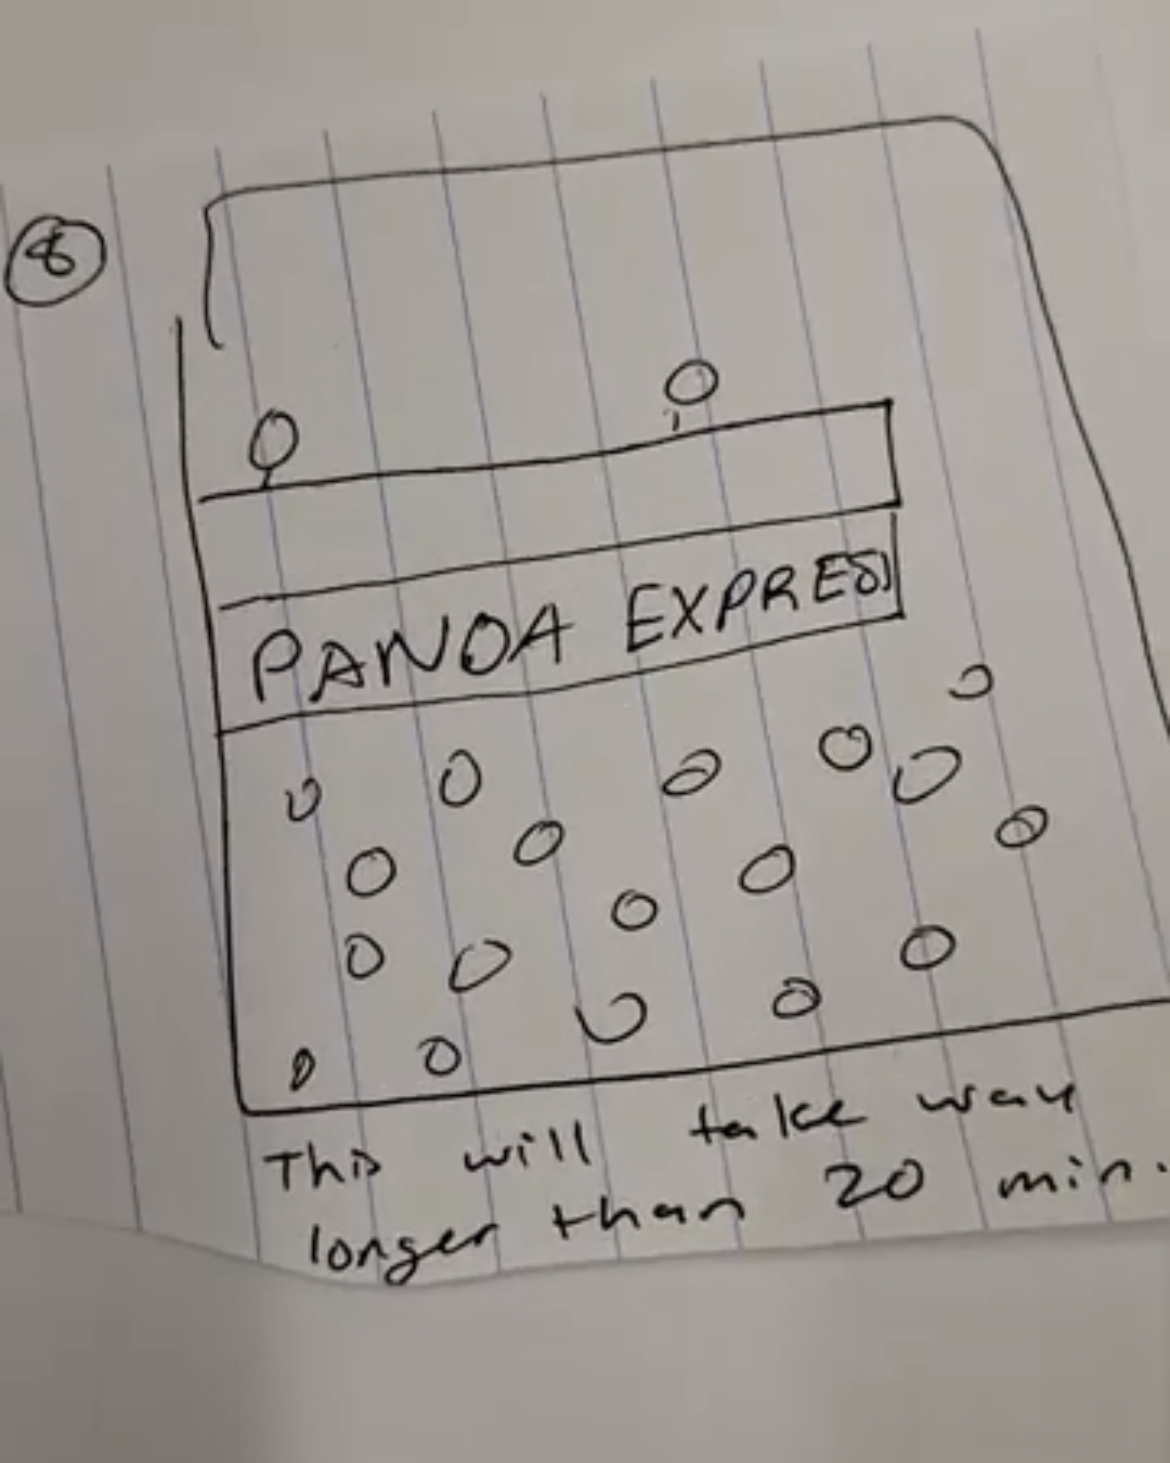 8
PANDA EXPRESS
This will take way
longer than 20 min.